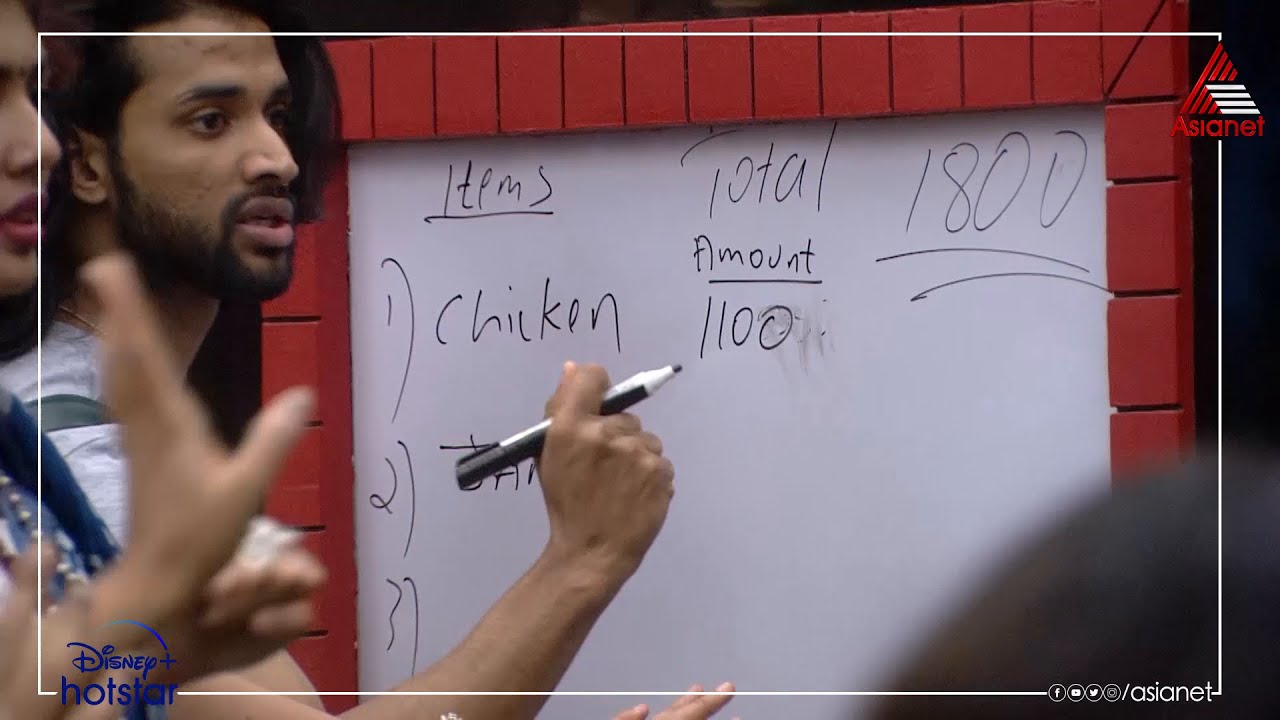 Asianet
Items
Total
1800
Amount
1) Chicken
1100
2)
3)
Disney+
hotstar
/asianet